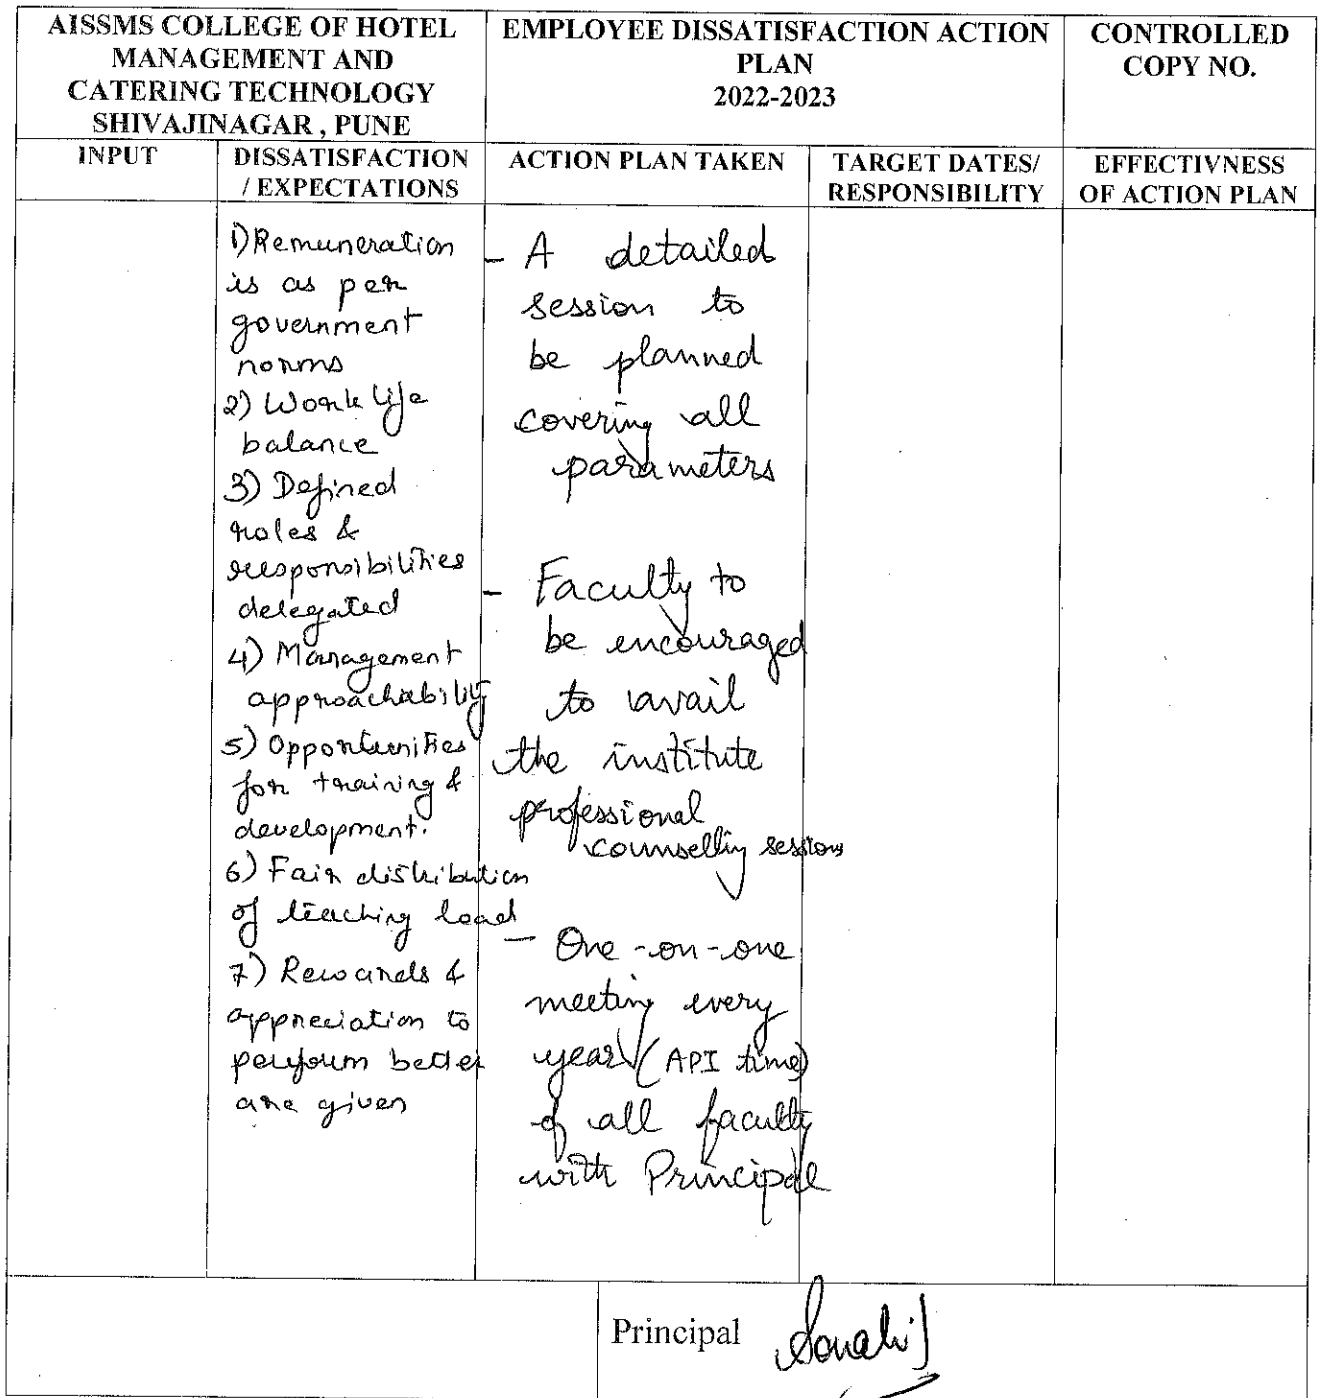 AISSMS COLLEGE OF HOTEL
MANAGEMENT AND
CATERING TECHNOLOGY
SHIVAJINAGAR , PUNE
EMPLOYEE DISSATISFACTION ACTION
PLAN
2022-2023
CONTROLLED
COPY NO.
INPUT
DISSATISFACTION
/ EXPECTATIONS
ACTION PLAN TAKEN
TARGET DATES/
RESPONSIBILITY
EFFECTIVNESS
OF ACTION PLAN
1) Remuneration
is as per
government
norms
2) Work life
balance
3) Defined
roles &
responsibilities
delegated
4) Management
approachability
5) Opportunities
for training &
development.
6) Fair distribution
of teaching load
7) Rewards &
appreciation to
perform better
are given
- A detailed
session to
be planned
covering all
parameters
- Faculty to
be encouraged
to avail
the institute
professional
counselling sessions
- One-on-one
meeting every
year (API time)
of all faculty
with Principal
Principal